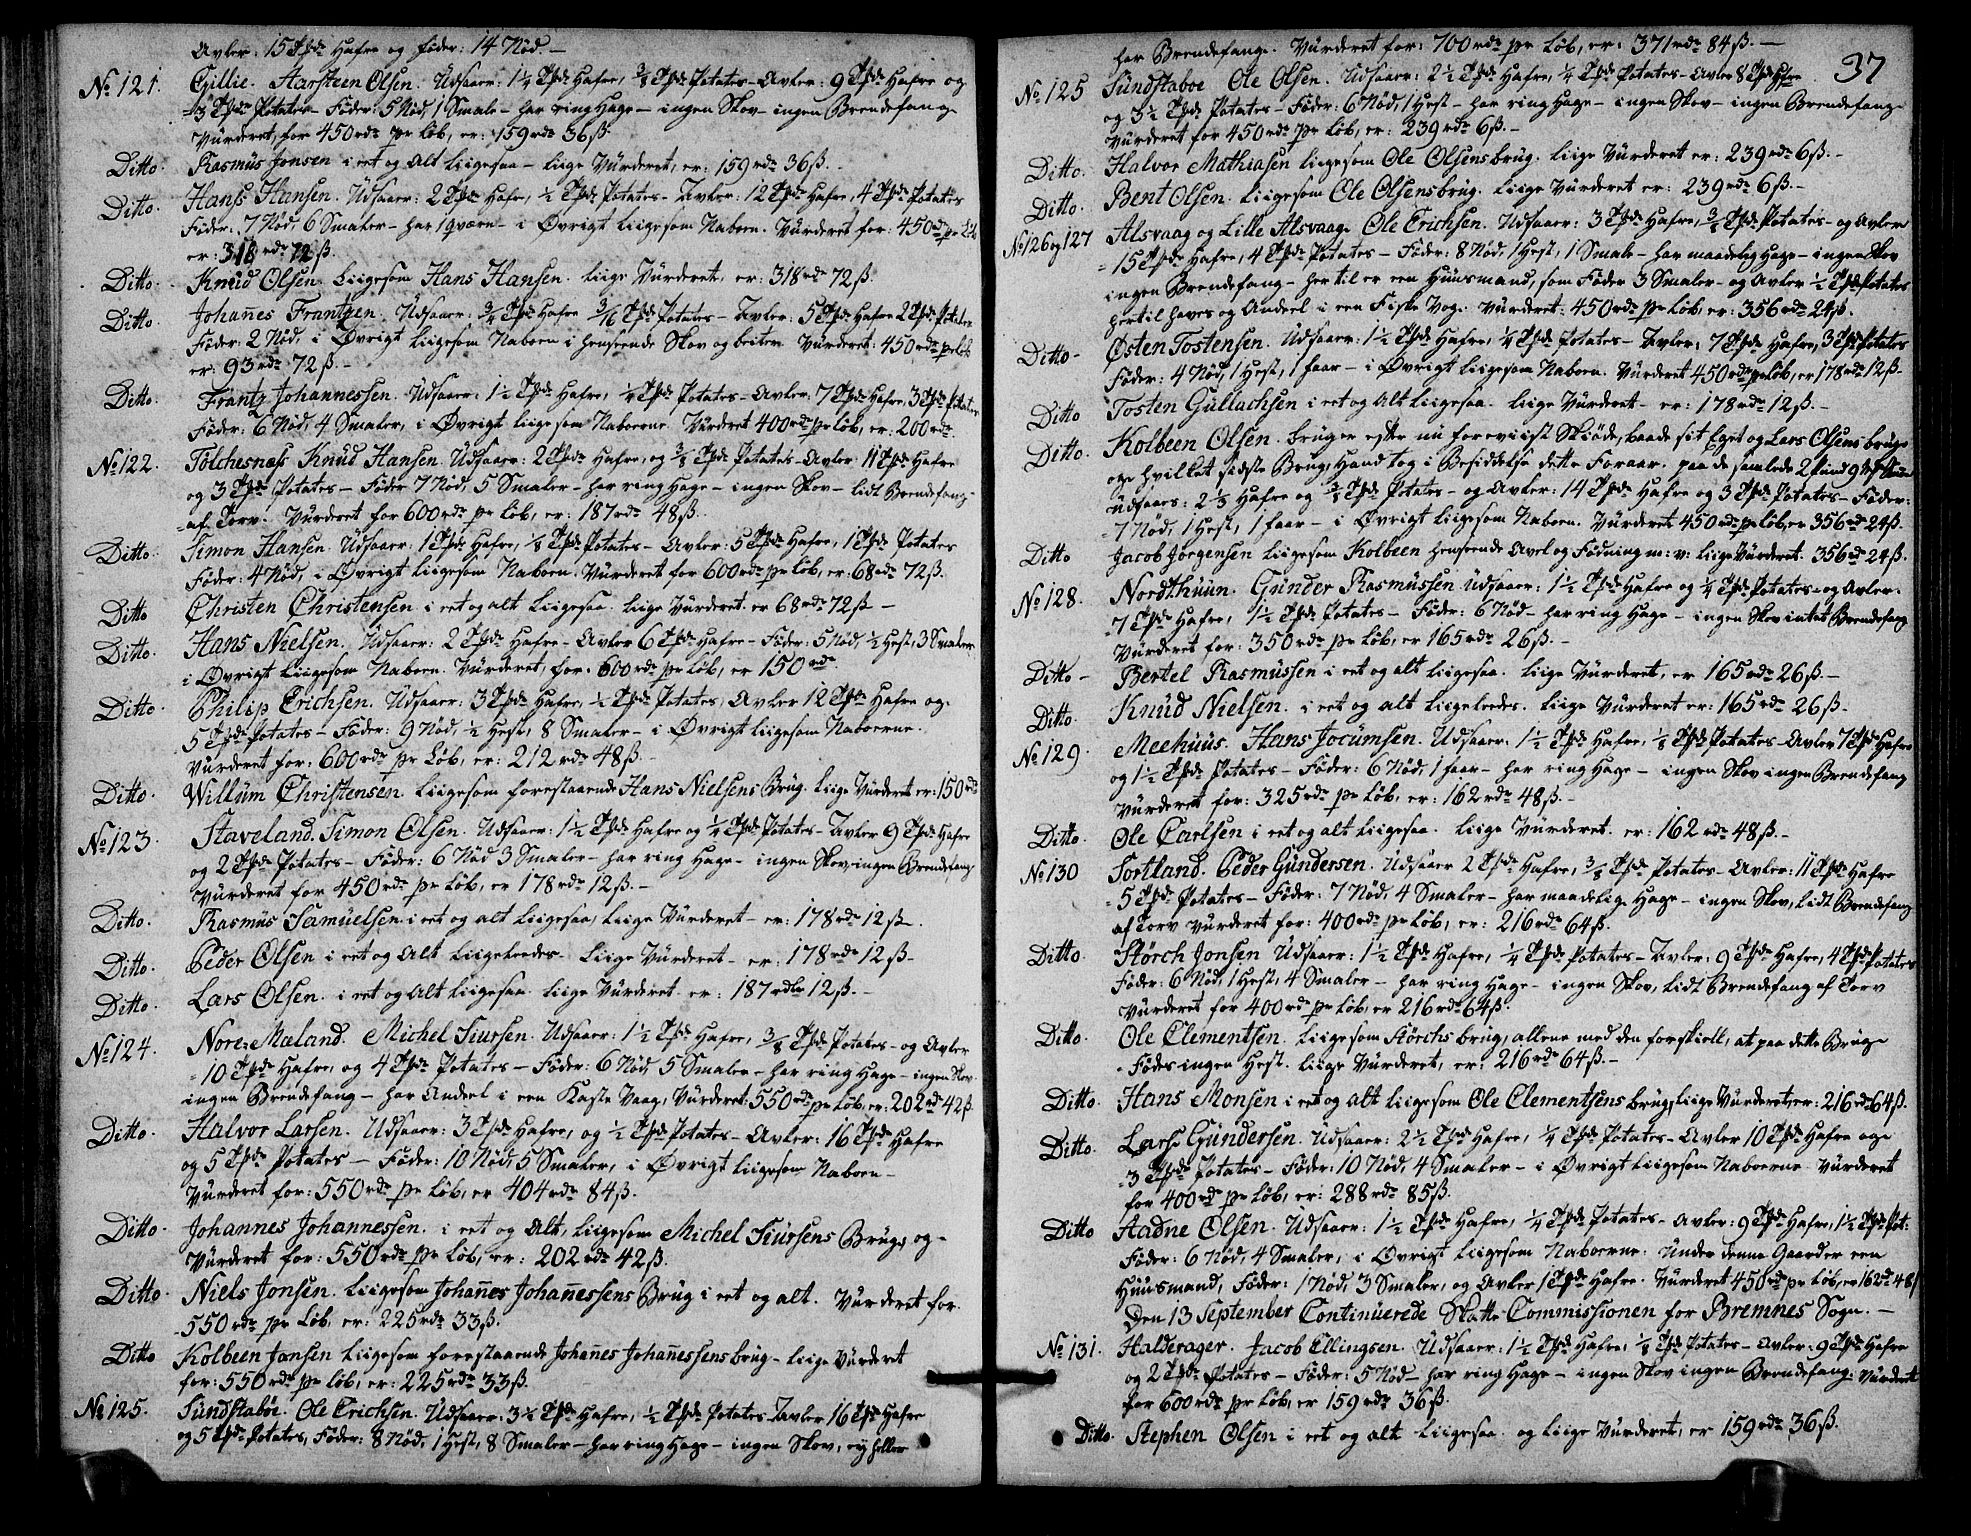 Avler: 15 Tpdr Hafre og føder: 14 Nød.—
No 121. Gillie. Aarsteen Olsen. Udsaaer: 1½ Tpdr Hafre, ¾ Tpdr Potates – Avler: 9 Tpdr Hafre og
3 Tpdr Potates – Føder: 5 Nød, 1 Smale – har ring Hage – ingen Skov – ingen Brendefang –
Vurderet for 450 rdr pr Løb, er: 159 rdr 36 ß.
Ditto. Rasmus Jonsen i eet og Alt liigesaa – liige Vurderet, er: 159 rdr 36 ß.
Ditto. Hans Hansen. Udsaaer: 2 Tpdr Hafre, ½ Tpdr Potates – Avler: 12 Tpdr Hafre, 4 Tpdr Potates
Føder: 7 Nød, 6 Smaler – har 1 qværn – i Øvrigt liigesom Naboen. Vurderet for: 450 rdr pr Løb
er: 318 rdr 72 ß.
Ditto. Knud Olsen. liigesom Hans Hansen. liige Vurderet, er: 318 rdr 72 ß.
Ditto Johannes Frantzen. Udsaaer: ¾ Tpdr Hafre 3/16 Tpdr Potates – Avler: 5 Tpdr Hafre 2 Tpdr Potates
Føder: 2 Nød, i Øvrigt liigesom Naboen i henseende Skov og beiter. Vurderet: 450 rdr pr Løb
er: 93 rdr 72 ß.—
Ditto. Frantz Johannessen. Udsaaer: 1½ Tpdr Hafre, ¼ Tpdr Potates – Avler: 7 Tpdr Hafre, 3 Tpdr Potates
Føder: 6 Nød, 4 Smaler, i Øvrigt liigesom Naboerne. Vurderet 400 rdr pr Løb, er: 200 rdr
No 122. Tolchesness Knud Hansen. Udsaaer: 2 Tpdr Hafre, og ⅜ Tpdr Potates – Avler: 11 Tpdr Hafre
og 3 Tpdr Potates – Føder 7 Nød, 5 Smaler – har ring Hage – ingen Skov – lidt Brendefang –
af Torv. Vurderet for 600 rdr pr Løb, er: 187 rdr 48 ß.
Ditto. Simon Hansen. Udsaaer: 1 Tpdr Hafre, ⅛ Tpdr Potates – Avler: 5 Tpdr Hafre, 1 Tpdr Potates
Føder: 4 Nød, i Øvrigt liigesom Naboen. Vurderet for 600 rdr pr Løb, er: 68 rdr 72 ß.
Ditto Christen Christensen i eet og alt liigesaa. liige Vurderet er 68 rdr 72 ß –
Ditto. Hans Nielsen. Udsaaer: 2 Tpdr Hafre – Avler 6 Tpdr Hafre – Føder: 5 Nød, ½ Hest, 3 Smaler
i Øvrigt liigesom Naboen. Vurderet, for: 600 rdr pr Løb, er 150 rdr
Ditto. Philip Erichsen. Udsaaer: 3 Tpdr Hafre, ½ Tpdr Potates, Avler 12 Tpdr Hafre og
5 Tpdr Potates – Føder: 9 Nød, ½ Hest, 8 Smaler – i Øvrigt liigesom Naboerne.
Vurderet for: 600 rdr pr Løb, er: 212 rdr 48 ß.
Ditto. Willum Christensen. liigesom forestaaende Hans Nielsens Brug. liige Vurderet er: 150 rdr
No 123. Staveland. Simon Olsen. Udsaaer: 1½ Tpdr Hafre og ¼ Tpdr Potates – Avler 9 Tpdr Hafre
og 2 Tpdr Potates – Føder: 6 Nød 3 Smaler – har ring Hage – ingen Skov, ingen Brendefang
Vurderet for 450 rdr pr Løb, er 178 rdr 12 ß.—
Ditto. Rasmus Samuelsen. i eet og alt liigesaa, liige Vurderet – er: 178 rdr 12 ß.
Ditto. Peder Olsen i eet og Alt liigeledes. liige Vurderet – er: 178 rdr 12 ß –
Ditto. Lars Olsen. i eet og Alt liigesaa. liige Vurderet. er: 187 rdlr 12 ß.–
No 124. Nore Mæland. Michel Siursen. Udsaaer: 1½ Tpdr Hafre, ⅜ Tpdr Potates – og Avler
10 Tpdr Hafre, og 4 Tpdr Potates – Føder: 6 Nød, 5 Smaler – har ring Hage – ingen Skov
ingen Brendefang – har Andeel i een Kaste Vaag, Vurderet: 550 rdr pr Løb, er: 202 rdr 42 ß.
Ditto. Halvor Larsen. Udsaaer: 3 Tpdr Hafre, og ½ Tpdr Potates – Avler: 16 Tpdr Hafre
og 5 Tpdr Potates – Føder: 10 Nød, 5 Smaler, i Øvrigt liigesom Naboen –
Vurderet for: 550 rdr pr Løb, er 404 rdr 84 ß.
Ditto. Johannes Johannessen. i eet og Alt, liigesom Michel Siursens Brug, og –
Vurderet for: 550 rdr pr Løb, er: 202 rdr 42 ß.
Ditto. Niels Jonsen. liigesom Johannes Johannessens Brug i eet og alt. Vurderet for.
550 rdr pr Løb, er: 225 rdr 33 ß.
Ditto Kolbeen Jansen liigesom forestaaende Johannes Johannessens brug – liige Vurderet
for: 550 rdr pr Løb, er: 225 rdr 33 ß.
No 125. Sundstaböe. Ole Erichsen. Udsaaer: 3½ Tpdr Hafre, ½ Tpdr Potates – Avler 16 Tpdr Hafre
og 5 Tpdr Potates, Føder: 8 Nød, 1 Hest, 8 Smaler – har ring Hage – ingen Skov, ey heller
37
har Brendefang. Vurderet for: 700 rdr pr Løb, er: 371 rdr 84 ß.—
No 125 Sundstaboe Ole Olsen. Udsaaer: 2½ Tpdr Hafre, ¼ Tpdr Potates – Avler 8 Tpdr Hafre
og 3½ Tpdr Potates – Føder: 6 Nød, 1 Hest – har ring Hage – ingen Skov – ingen Brendefang
Vurderet for 450 rdr pr Løb, er: 239 rdr 6 ß.–
Ditto. Halvor Mathiasen liigesom Ole Olsens brug. liige Vurderet er: 239 rdr 6 ß.–
Ditto. Bent Olsen. liigesom Ole Olsens brug. liige Vurderet er: 239 rdr 6 ß.–
No 126 og 127 Alsvaag og Lille Alsvaag. Ole Erichsen. Udsaaer: 3 Tpdr Hafre, ¾ Tpdr Potates – og Avler
15 Tpdr Hafre, 4 Tpdr Potates – Føder: 8 Nød, 1 Hest, 1 Smale – har maadelig Hage – ingen Skov
ingen Brendefang – hertil er een Huusmand, som Føder 3 Smaler – og Avler ½ Tpdr Potates
hertil haves og Andeel i een Fiske Vog. Vurderet: 450 rdr pr Løb, er: 356 rdr 24 ß.
Ditto – Østen Tostensen. Udsaaer: 1½ Tpdr Hafre, ¼ Tpdr Potates – Avler: 7 Tpdr Hafre, 3 Tpdr Potates
Føder: 4 Nød, 1 Hest, 1 faar – i Øvrigt liigesom Naboen. Vurderet 450 rdr pr Løb, er 178 rdr 12 ß.
Ditto Tosten Gullachsen i eet og Alt liigesaa. liige Vurderet – er: 178 rdr 12 ß.–
Ditto. Kolbeen Olsen. bruger efter nu foreviist Skiöde, baade sit Eget og Lars Olsens brug
og hvilket sidste Brug, Hand tog i Besiddelse dette Foraar. paa de samlede 2 Pund
udsaaes: 2⅓ Hafre og ⅜ Tpdr Potates – og Avler: 14 Tpdr Hafre og 3 Tpdr Potates – Føder:
7 Nød, 1 Hest, 1 faar – i Øvrigt liigesom Naboen. Vurderet 450 rdr pr Løb, er 356 rdr 24 ß.
Ditto Jacob Jørgensen liigesom Kolbeen henseende Avel og Födning m: v: liige Vurderet. 356 rdr 24 ß.
No 128. Nordthuun. Gunder Rasmussen udsaaer: 1½ Tpdr Hafre og ¼ Tpdr Potates – og Avler:
7 Tpdr Hafre, 1½ Tpdr Potates – Føder: 6 Nød – har ring Hage – ingen Skov intet Brendefang
Vurderet for: 350 rdr pr Løb, er 165 rdr 26 ß.–
Ditto – Bertel Rasmussen i eet og alt liigesaa. liige Vurderet, er 165 rdr 26 ß.–
Ditto. Knud Nielsen. i eet og alt liigeledes. liige Vurderet er: 165 rdr 26 ß.
No 129. Meehuus. Hans Jocumsen. Udsaaer: 1½ Tpdr Hafre, ⅛ Tpdr Potates – Avler 7 Tpdr Hafre
og 1½ Tpdr Potates – Føder: 6 Nød, 1 faar – har ring Hage – ingen Skov ingen Brendefang
Vurderet for: 325 rdr pr Løb, er: 162 rdr 48 ß.–
Ditto. Ole Carlsen i eet og alt liigesaa. liige Vurderet. er: 162 rdr 48 ß.–
No 130 Tortland. Peder Gundersen. Udsaaer 2 Tpdr Hafre, ⅜ Tpdr Potates – Avler: 11 Tpdr Hafre
5 Tpdr Potates – Føder: 7 Nød, 4 Smaler – har maadelig Hage – ingen Skov, lidt Brendefang
af Torv Vurderet for: 400 rdr pr Løb, er: 216 rdr 64 ß.
Ditto. Størch Jonsen Udsaaer: 1½ Tpdr Hafre, ¼ Tpdr Potates – Avler: 9 Tpdr Hafre, 4 Tpdr Potates
Føder: 6 Nød, 1 Hest, 4 Smaler – har ring Hage – ingen Skov, lidt Brendefang af Torv
Vurderet for 400 rdr pr Løb, er 216 rdr 64 ß.
Ditto. Ole Clementsen. liigesom Størchs brug, allene med den forskiell, at paa dette Brug
Fødes ingen Hest. liige Vurderet, er: 216 rdr 64 ß.–
Ditto. Hans Monsen i eet og alt liigesom Ole Clementsens brug, liige Vurderet, er: 216 rdr 64 ß.
Ditto. Lars Gundersen. Udsaaer: 2½ Tpdr Hafre, ¼ Tpdr Potates – Avler 10 Tpdr Hafre og
3 Tpdr Potates – Føder: 10 Nød, 4 Smaler – i Øvrigt liigesom Naboerne Vurderet
for 400 rdr pr Løb, er: 288 rdr 85 ß.
Ditto Aadne Olsen. Udsaaer: 1½ Tpdr Hafre, ¼ Tpdr Potates – Avler: 9 Tpdr Hafre, 1½ Tpdr Pot:
Føder: 6 Nød, 4 Smaler, i Øvrigt liigesom Naboerne. Under denne Gaard er een
Huusmand, Føder: 1 Nød, 3 Smaler, og Avler 1 Tpdr Hafre. Vurderet 450 rdr pr Løb, er 162 rdr 48 ß
Den 13 September Continuerede Skatte-Commissionen for Bremnes Sogn.—
No 131. Halderager. Jacob Ellingsen. Udsaaer: 1½ Tpdr Hafre, ⅛ Tpdr Potates – Avler: 9 Tpdr Hafre
og 2 Tpdr Potates – Føder: 5 Nød – har ring Hage – ingen Skov ingen Brendefang: Vurderet
for 600 rdr pr Løb, er 159 rdr 36 ß.
Ditto. Stephen Olsen i eet og alt liigesaa. og liige Vurderet, er 159 rdr 36 ß.